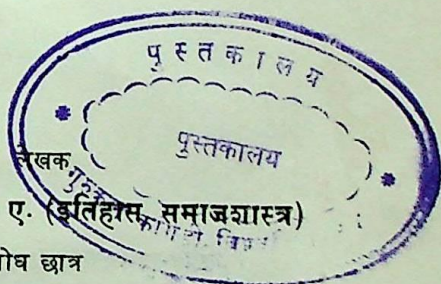 पुस्तकालय
पुस्तकालय
लेखक
ए. (इतिहास, समाजशास्त्र)
ोध छात्र